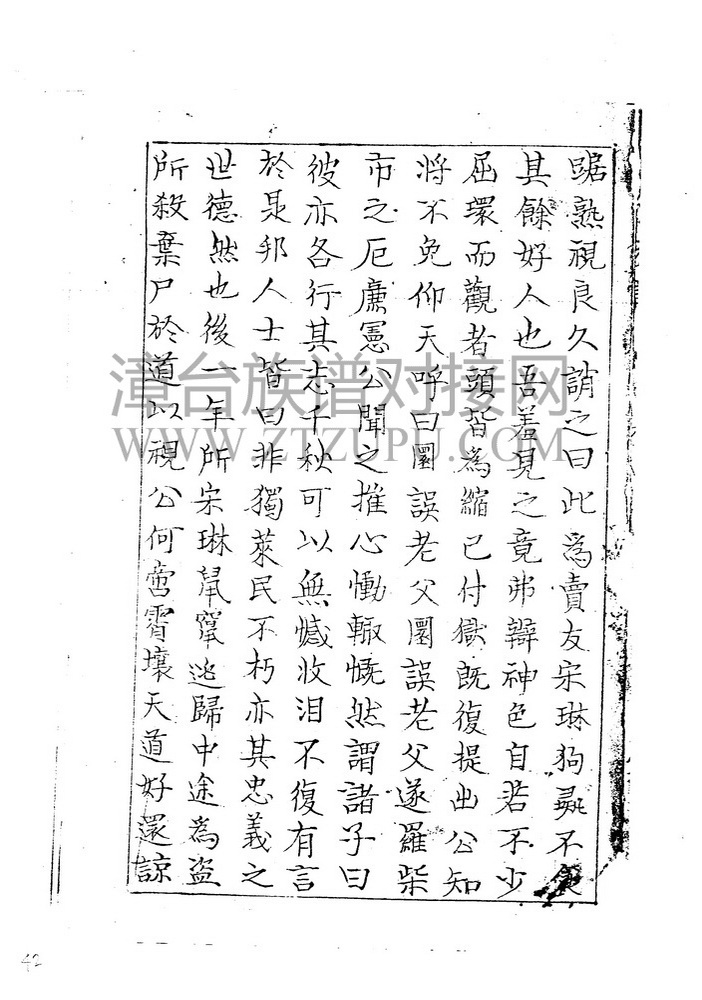 踞熟視良久誚之曰此為賣友宋琳狗彘不食
其餘好人也吾羞見之竟弗辯神色自若不少
屈環而觀者頭皆為縮已付獄既復提出公知
將不免仰天呼曰圜誤老父圜誤老父遂羅柴
市之厄廉憲公聞之摧心慟輒慨然謂諸子曰
彼亦各行其志千秋可以無憾收泪不復有言
於是邦人士皆曰非獨萊民不朽亦其忠義之
世德然也後一年所宋琳鼠竄逃歸中途為盜
所殺棄尸於道以視公何啻霄壤天道好還諒
漳台族谱对接网
WWW.ZTZUPU.COM
42